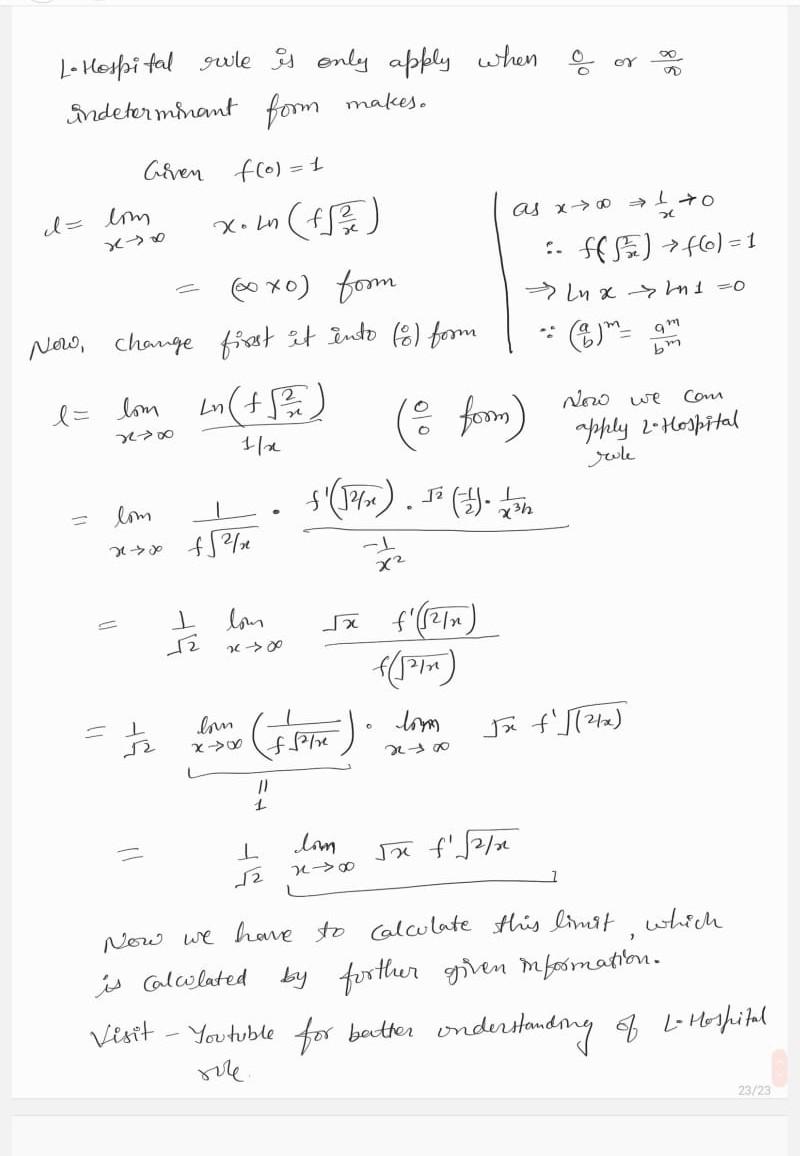 L-Hospital rule is only apply when 0/0 or ∞/∞
indeterminant form makes.
Given f(0) = 1
l = lim x→∞ x. Ln (f√(2/x))
= (∞×0) form
Now, change first it into (0/0) form
as x→∞ ⇒ 1/x → 0
∴ f(√(2/x)) → f(0) = 1
⇒ Ln x → ln 1 = 0
∵ (a/b)^m = a^m/b^m
l = lim x→∞ Ln(f√(2/x)) / (1/x) (0/0 form)
Now we can
apply L-Hospital
rule
= lim x→∞ 1/(f√(2/x)) . (f'(√(2/x)) . √2 (-1/2) . 1/x^(3/2)) / (-1/x²)
= 1/√2 lim x→∞ √x f'(√(2/x)) / f(√(2/x))
= 1/√2 lim x→∞ (1/(f√(2/x))) . lim x→∞ √x f'√(2/x)
||
1
= 1/√2 lim x→∞ √x f'√(2/x)
Now we have to calculate this limit, which
is calculated by further given information.
Visit - Youtuble for beatter understanding of L-Hospital
rule.
23/23